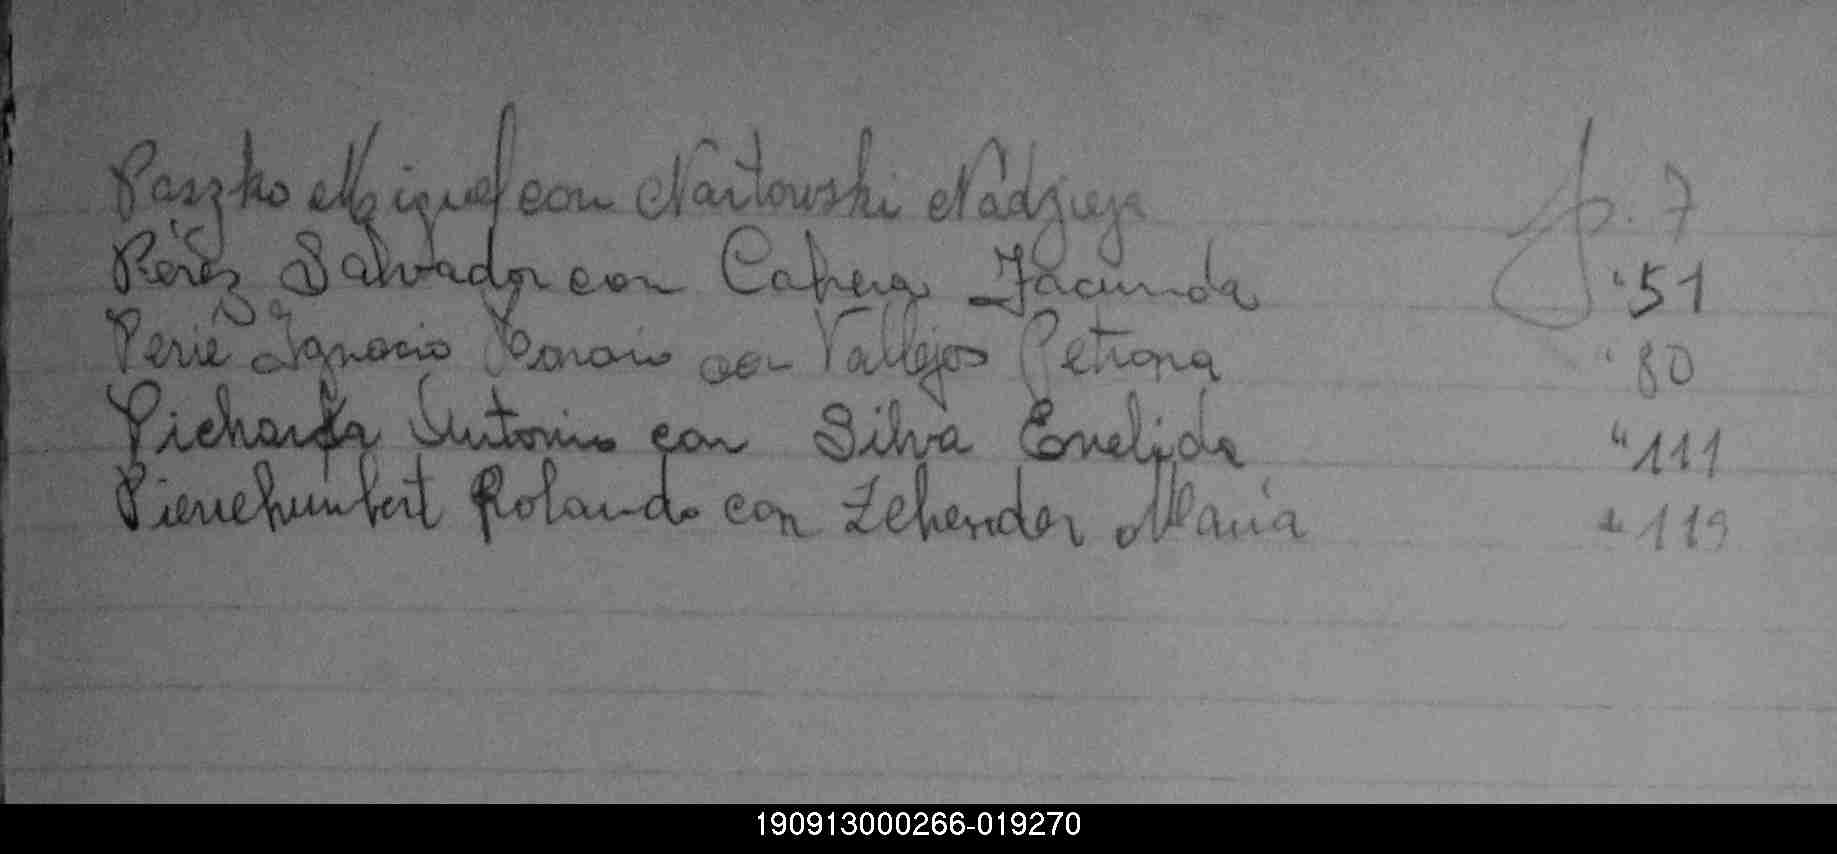 Paszko Miguel con Nartowski Nadzieja fp. 7
Pérez Salvador con Cabrera Facunda " 51
Perié Ignacio con Vallejos Petrona " 80
Picharda Antonio con Silva Enelida " 111
Pierrehumbert Rolando con Zehender María " 119
190913000266-019270